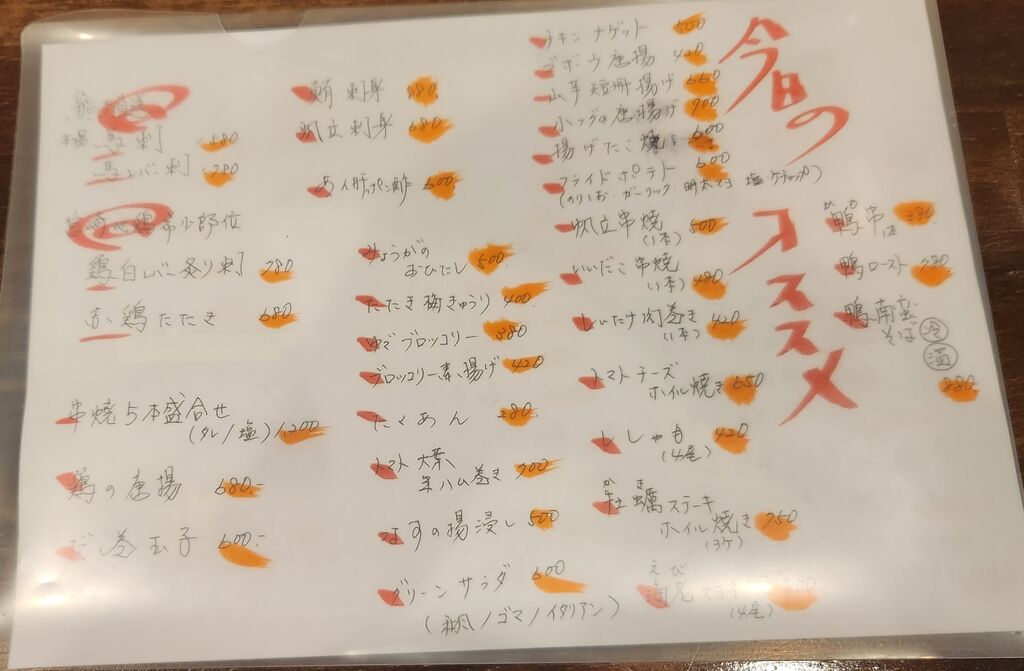 今日の
オススメ
鴨串
鴨ロースト
鴨南蛮
そば 冷 温
880
チキンナゲット 500
ゴボウ唐揚 420
山芋短冊揚げ
小フグの唐揚げ 900
揚げたこ焼き 600
フライドポテト 600
(のりしお・ガーリック・明太マヨ 塩・ケチャップ)
帆立串焼 500
(1本)
いいだこ串焼 480
(1本)
しいたけ肉巻き 420
(1本)
トマトチーズ
ホイル焼き 650
ししゃも 420
(4尾)
かき
牡蠣ステーキ
ホイル焼き
(3ケ)
えび
海老マヨ
(4尾)
鮪刺身 880.
帆立刺身 680.
あん肝ポン酢 600.
みょうがの
おひたし 500.
たたき梅きゅうり 400
ゆでブロッコリー 380
ブロッコリー素揚げ 420
たくあん
トマト大葉
生ハム巻き
なすの揚浸し 500
グリーンサラダ 600
(和風/ゴマ/イタリアン)
本場 馬刺
馬レバー刺
宮崎地鶏希少部位
鶏白レバー炙り刺
赤鶏たたき 680
串焼5本盛合せ
(タレ/塩) 1,200
鶏の唐揚 680.-
だし巻玉子 600.-